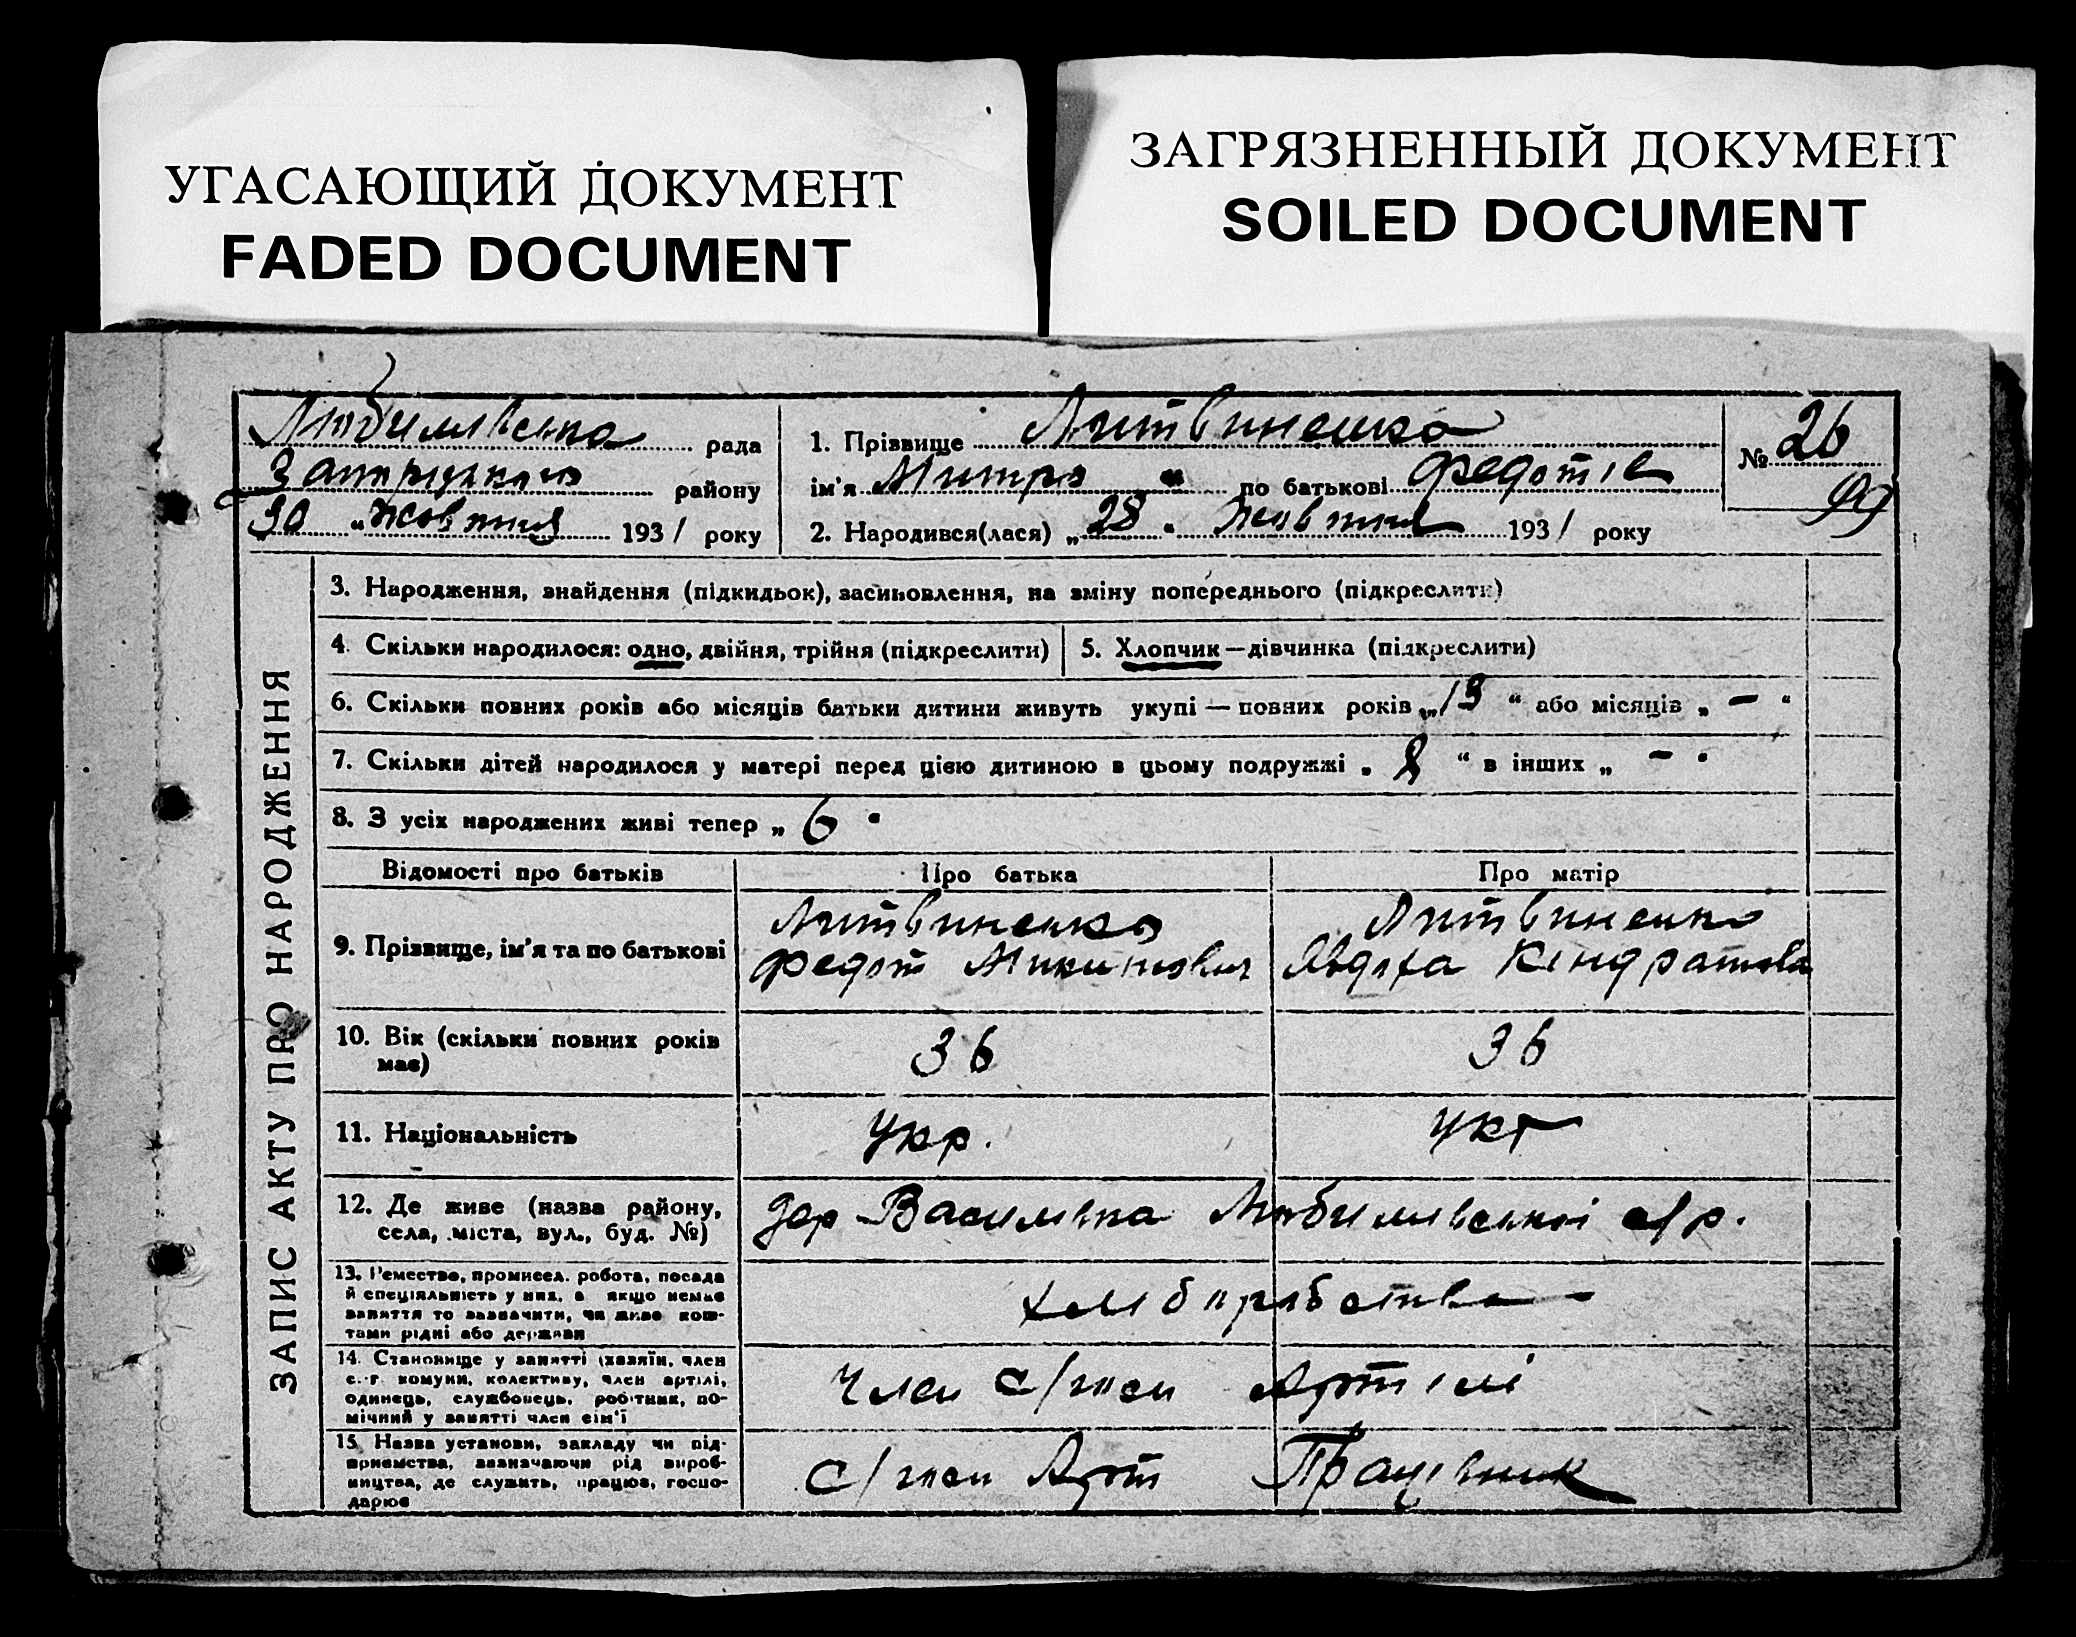 УГАСАЮЩИЙ ДОКУМЕНТ
FADED DOCUMENT
ЗАГРЯЗНЕННЫЙ ДОКУМЕНТ
SOILED DOCUMENT
Любимівська рада
району
30 „ жовтня 1931 року
1. Прізвище Литвиненко
ім'я Митро “ по батькові Федотів
2. Народився(лася) „28 “ жовтня 1931 року
№ 26
99
ЗАПИС АКТУ ПРО НАРОДЖЕННЯ
3. Народження, знайдення (підкидьок), засиновлення, на зміну попереднього (підкреслити)
4. Скільки народилося: одно, двійня, трійня (підкреслити)
5. Хлопчик—дівчинка (підкреслити)
6. Скільки повних років або місяців батьки дитини живуть укупі — повних років „13 “ або місяців „ – “
7. Скільки дітей народилося у матері перед цією дитиною в цьому подружжі „ 8 “ в інших „ – “
8. З усіх народжених живі тепер „ 6 “
Відомості про батьків
Про батька
Про матір
9. Прізвище, ім'я та по батькові
Литвиненко
Федот Микитович
Литвиненко
Явдоха Кіндратова
10. Вік (скільки повних років
має)
36
36
11. Національність
Укр.
Укр
12. Де живе (назва району,
села, міста, вул., буд. №)
дер Василівка Любимівської с/р.
13. Ремество, промисел. робота, посада
й спеціяльність у них, а якщо немає
заняття то зазначити, чи живе кош-
тами рідні або держави
хліборобство –
14. Становище у занятті (хазяїн, член
с.-г. комуни, колективу, член артілі,
одинець, службовець, робітник, по-
мічний у занятті член сім'ї
Член с/госп Артілі
15. Назва установи, закладу чи під-
приємства, зазначаючи рід вироб-
ництва, де служить, працює, госпо-
дарює
с/госп Арт Працівник